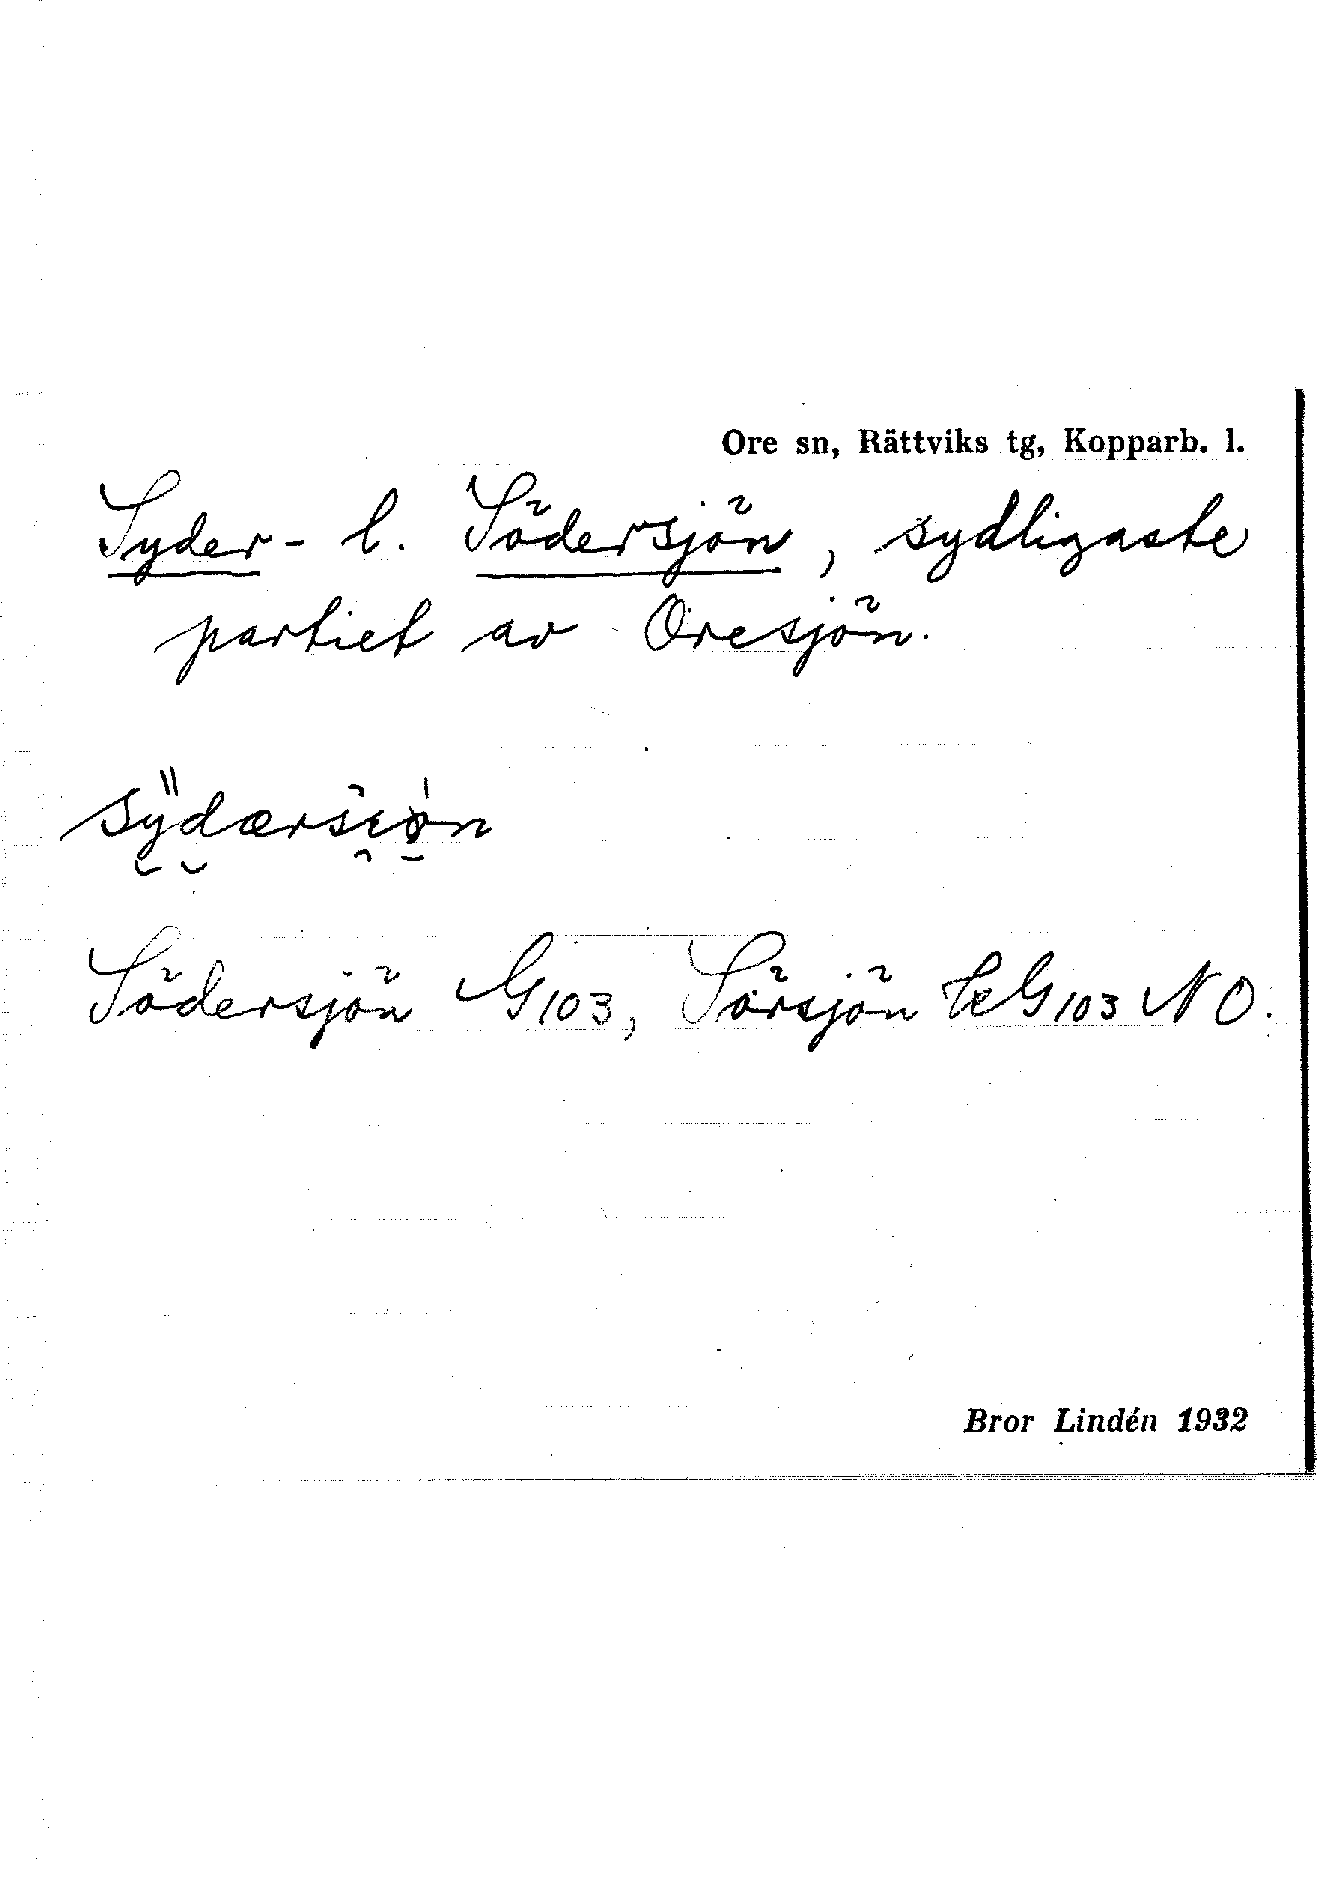 Ore sn, Rättviks tg, Kopparb. l.
Syder- l. Södersjön, sydligaste
partiet av Oresjön.
Södersjön G103, Sörsjön G103 NO.
Bror Lindén 1932